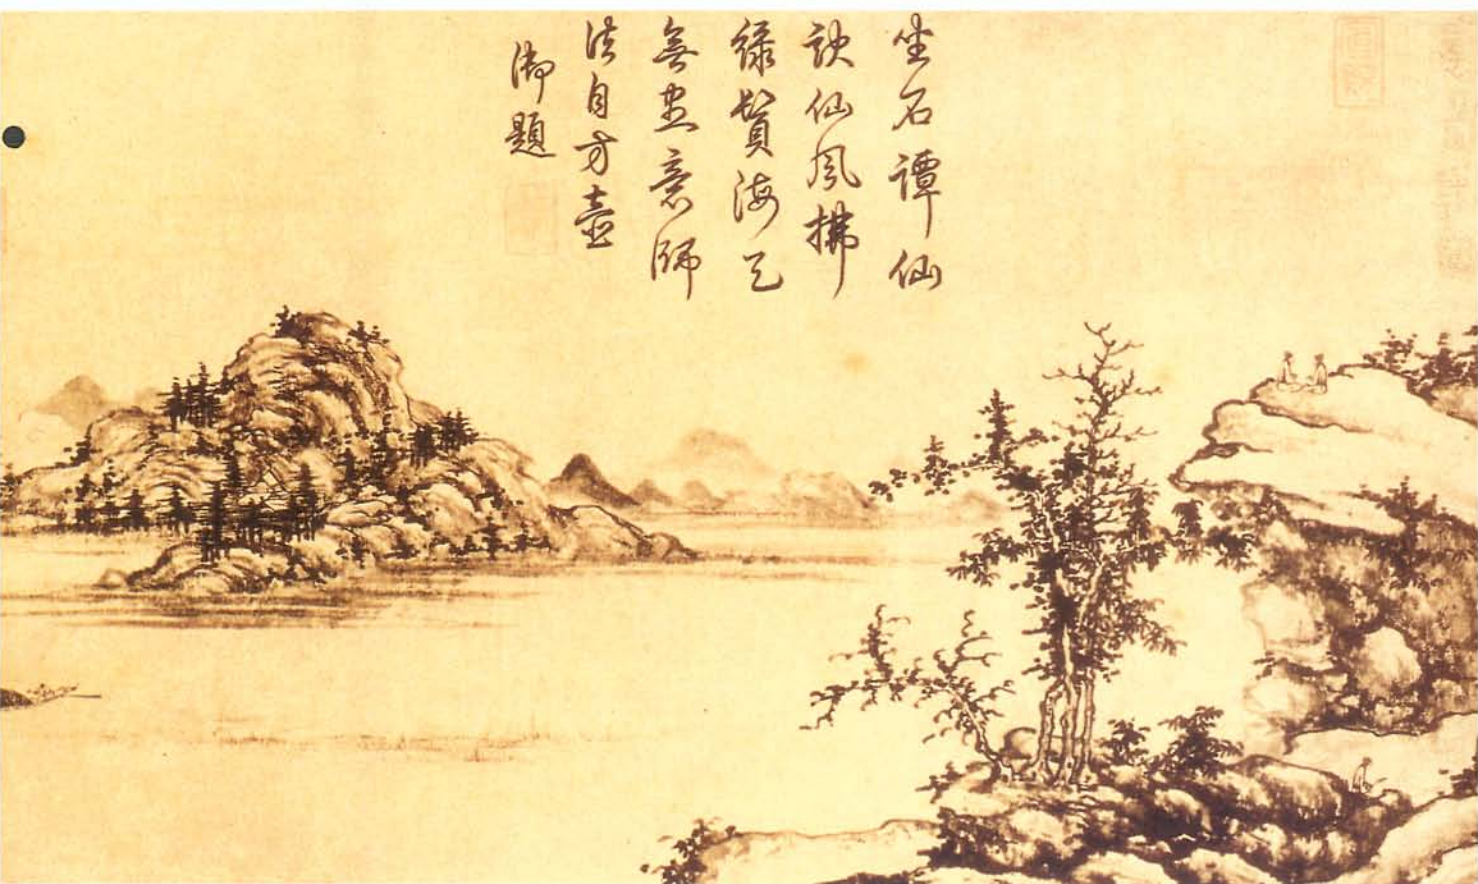 坐石譚仙
訣仙風拂
綠鬚海天
無盡意師
法自方壺
御題